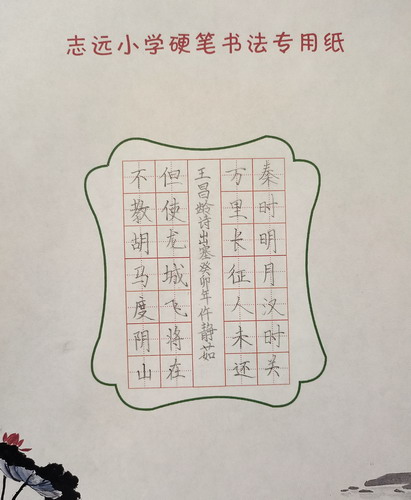 志远小学硬笔书法专用纸
秦时明月汉时关
万里长征人未还
王昌龄诗出塞癸卯年仵静茹
但使龙城飞将在
不教胡马度阴山